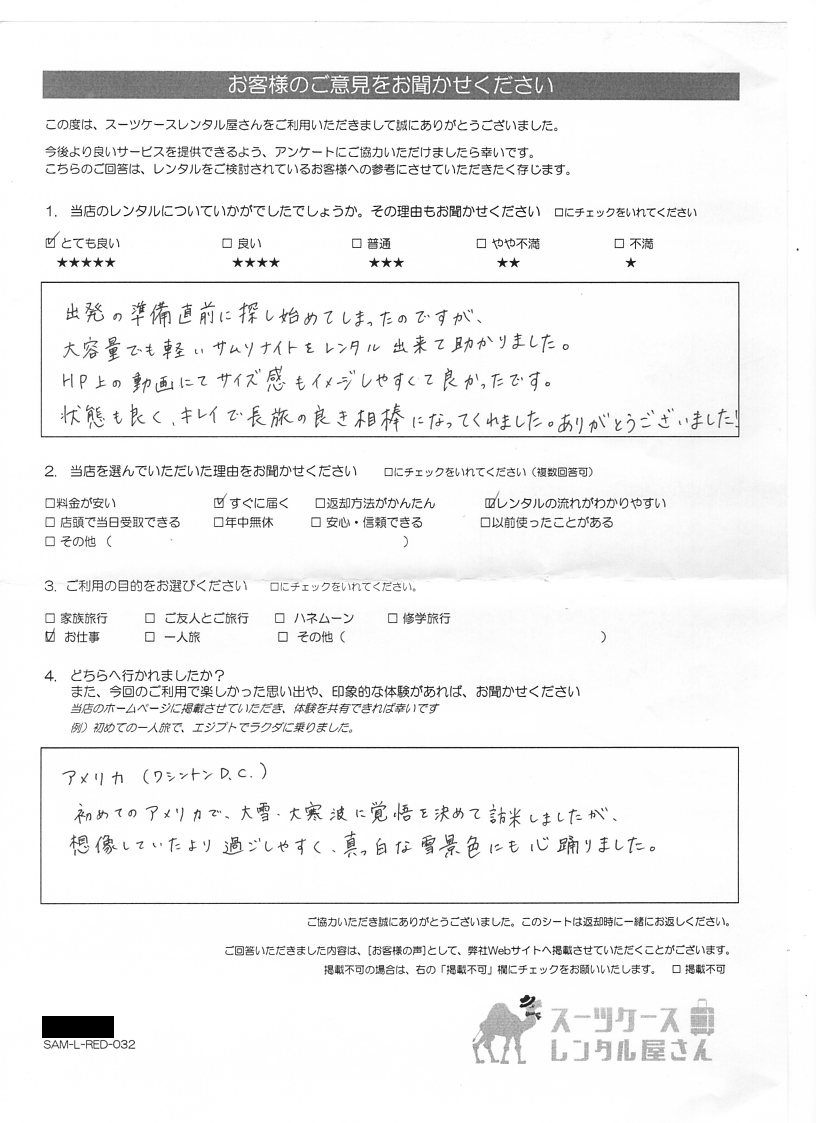 お客様のご意見をお聞かせください
この度は、スーツケースレンタル屋さんをご利用いただきまして誠にありがとうございました。
今後より良いサービスを提供できるよう、アンケートにご協力いただけましたら幸いです。
こちらのご回答は、レンタルをご検討されているお客様への参考にさせていただきたく存じます。
1. 当店のレンタルについていかがでしたでしょうか。その理由もお聞かせください □にチェックをいれてください
☑ とても良い □ 良い □ 普通 □ やや不満 □ 不満
★★★★★ ★★★★ ★★★ ★★ ★
出発の準備直前に探し始めてしまったのですが、
大容量でも軽いサムソナイトをレンタル出来て助かりました。
HP上の動画にてサイズ感もイメージしやすくて良かったです。
状態も良く、キレイで長旅の良き相棒になってくれました。ありがとうございました!
2. 当店を選んでいただいた理由をお聞かせください □にチェックをいれてください（複数回答可）
□料金が安い ☑ すぐに届く □返却方法がかんたん ☑レンタルの流れがわかりやすい
□ 店頭で当日受取できる □年中無休 □ 安心・信頼できる □以前使ったことがある
□ その他（ ）
3. ご利用の目的をお選びください □にチェックをいれてください。
□ 家族旅行 □ ご友人とご旅行 □ ハネムーン □ 修学旅行
☑ お仕事 □ 一人旅 □ その他（ ）
4. どちらへ行かれましたか？
また、今回のご利用で楽しかった思い出や、印象的な体験があれば、お聞かせください
当店のホームページに掲載させていただき、体験を共有できれば幸いです
例）初めての一人旅で、エジプトでラクダに乗りました。
アメリカ（ワシントンD.C.）
初めてのアメリカで、大雪・大寒波に覚悟を決めて訪米しましたが、
想像していたより過ごしやすく、真っ白な雪景色にも心踊りました。
ご協力いただき誠にありがとうございました。このシートは返却時に一緒にお返しください。
ご回答いただきました内容は、[お客様の声]として、弊社Webサイトへ掲載させていただくことがございます。
掲載不可の場合は、右の「掲載不可」欄にチェックをお願いいたします。 □ 掲載不可
SAM-L-RED-032
スーツケース
レンタル屋さん